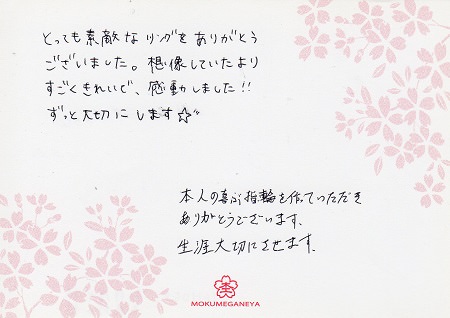 とっても素敵なリングをありがとう
ございました。想像していたより
すごくきれいで、感動しました!!
ずっと大切にします☆
本人の喜ぶ指輪を作っていただき
ありがとうございます。
生涯大切にさせます。
MOKUMEGANEYA